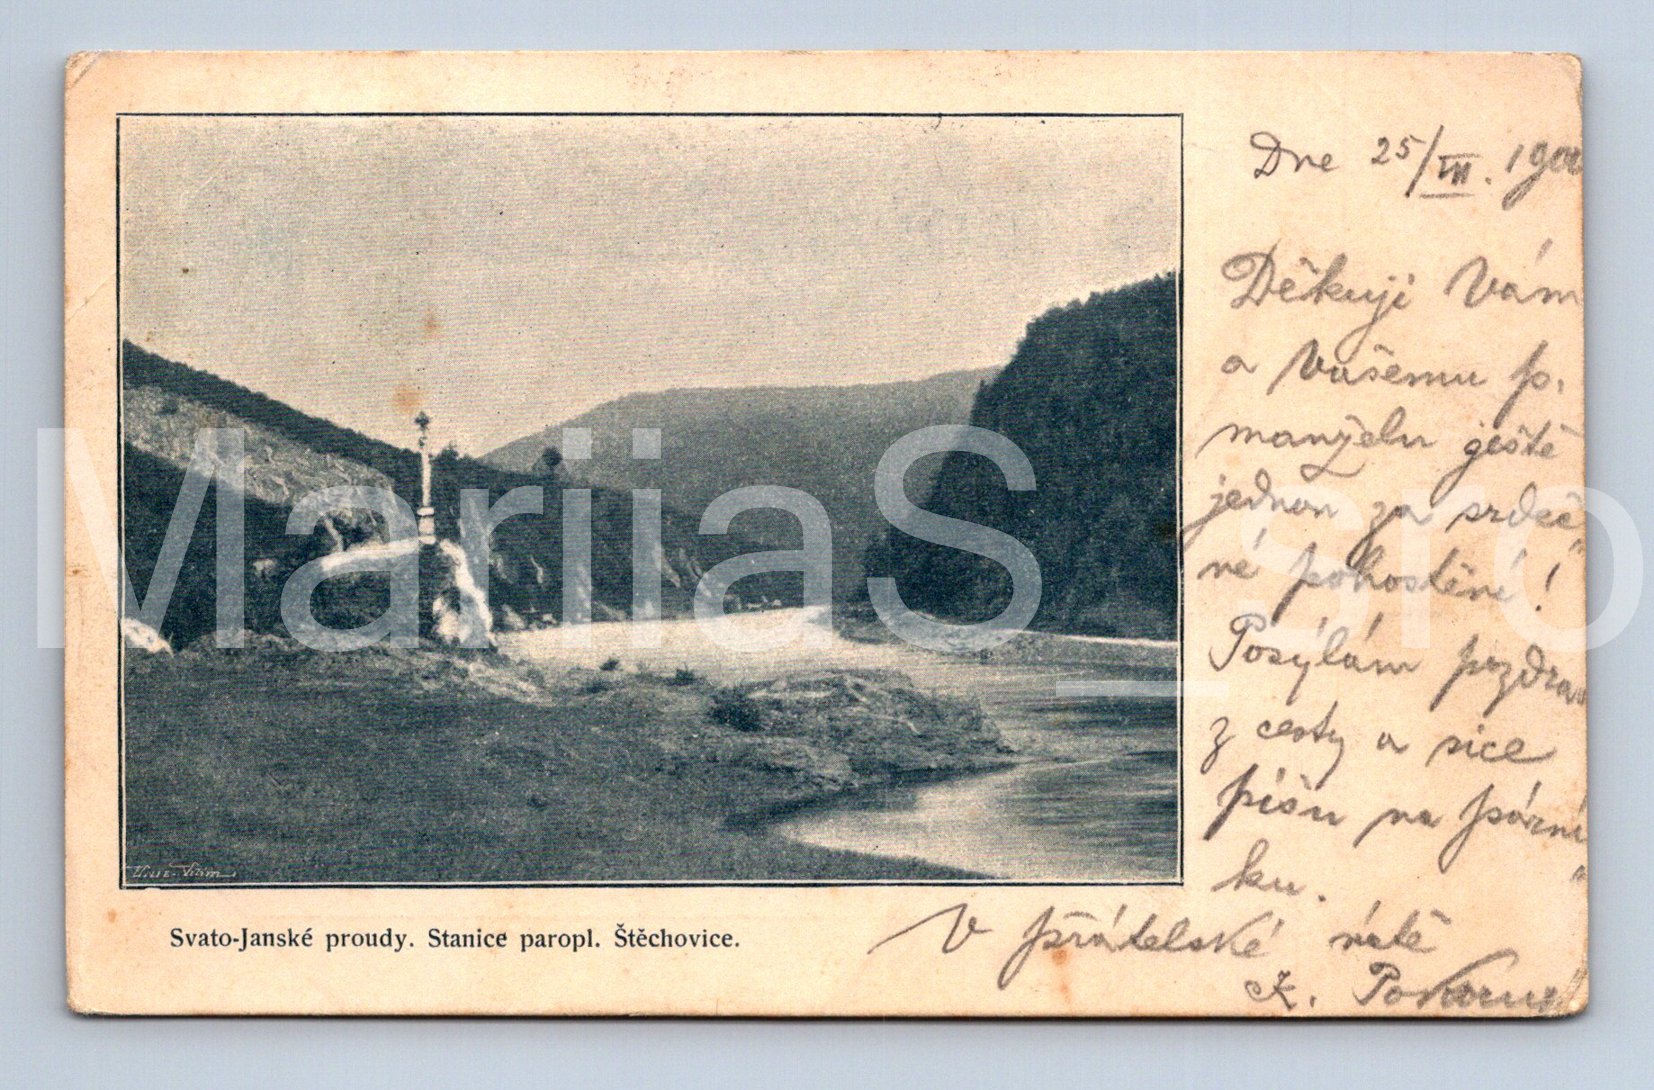 Dne 25/VII. 1900
Děkuji Vám
a Vašemu p.
manželu ještě
jednou za srdeč„
né pohostěné!
Posýlám pozdrav
z cesty a sice
píšu na pární„
ku.
V přátelské úctě
Pokorný
Svato-Janské proudy. Stanice paropl. Štěchovice.
MariiaS_sro